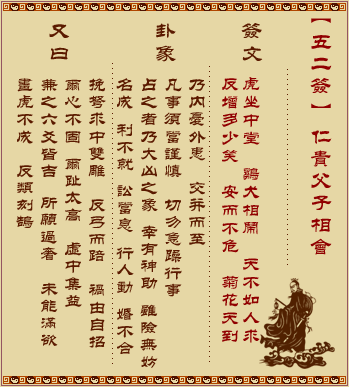 【五二簽】 仁貴父子相會
簽文
虎坐中堂 鷄犬相鬧 天不如人求
反增多少笑 安而不危 菊花天到
卦象
乃內憂外患 交并而至
凡事須當謹慎 切勿急躁行事
占之者乃大凶之象 幸有神助 雖險無妨
名成 利不就 訟當息 行人動 婚不合
又曰
挽弩求中雙鵰 反弓而踣 禍由自招
爾心不固 爾趾太高 虛中集益
兼之六爻皆吉 所願過奢 未能滿欲
畫虎不成 反類刻鵠